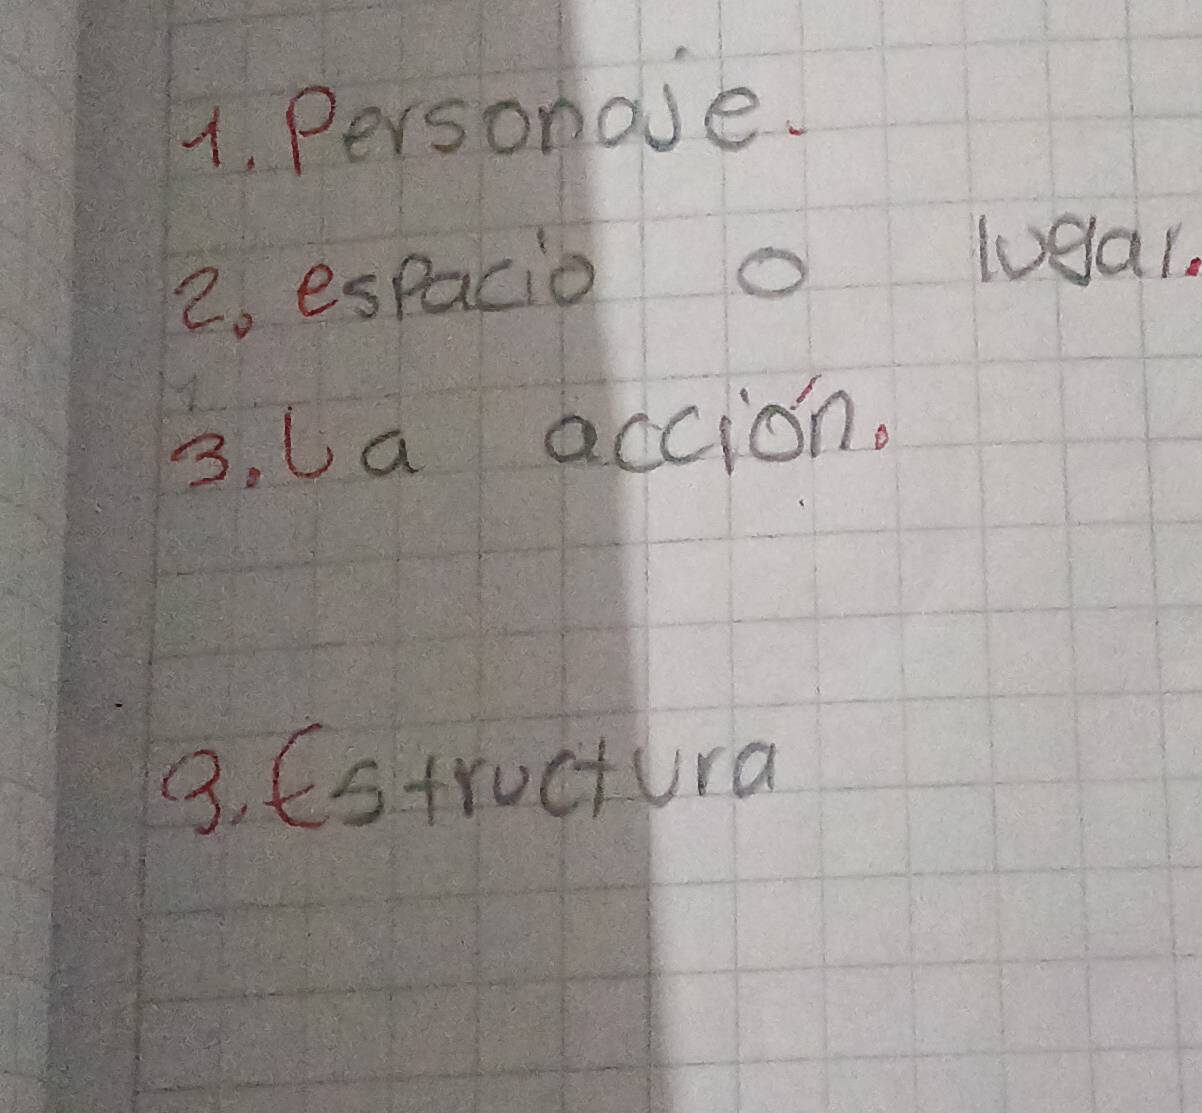 1. Personaje.
2. espacio o lugar.
3. La acción.
3. Estructura